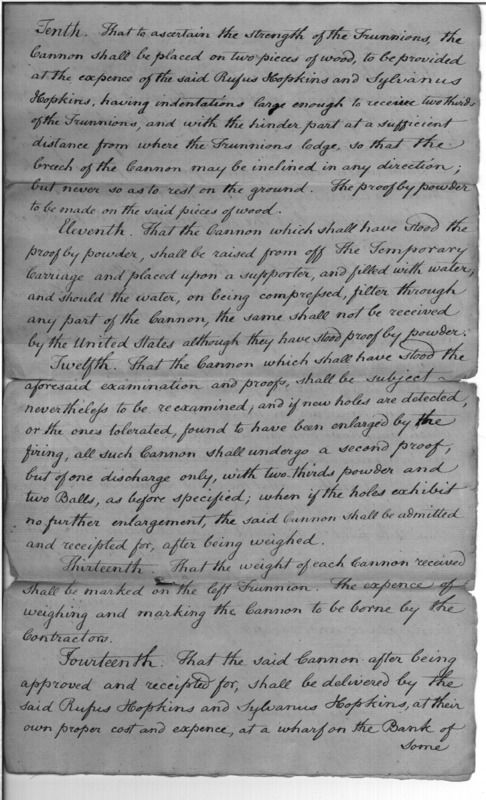 Tenth. That to ascertain the strength of the Trunnions, the
Cannon shall be placed on two pieces of wood, to be provided
at the expence of the said Rufus Hopkins and Sylvanus
Hopkins, having indentations large enough to receive two thirds
of the Trunnions, and with the hinder part at a sufficient
distance from where the Trunnions lodge, so that the
breech of the Cannon may be inclined in any direction;
but never so as to rest on the ground. The proof by powder
to be made on the said pieces of wood.
Eleventh. That the Cannon which shall have stood the
proof by powder, shall be raised from off the Temporary
Carriage and placed upon a supporter, and filled with water,
and should the water, on being compressed, filter through
any part of the Cannon, the same shall not be received
by the United States although they have stood proof by powder.
Twelfth. That the Cannon which shall have stood the
aforesaid examination and proofs, shall be subject
nevertheless to be reexamined, and if new holes are detected,
or the ones tolerated, found to have been enlarged by the
firing, all such Cannon shall undergo a second proof,
but of one discharge only, with two thirds powder and
two Balls, as before specified; when if the holes exhibit
no further enlargement, the said Cannon shall be admitted
and receipted for, after being weighed.
Thirteenth. That the weight of each Cannon received
shall be marked on the left Trunnion. The expence of
weighing and marking the Cannon to be borne by the
Contractors.
Fourteenth. That the said Cannon after being
approved and receipted for, shall be delivered by the
said Rufus Hopkins and Sylvanus Hopkins, at their
own proper cost and expence, at a wharf on the Bank of
Some